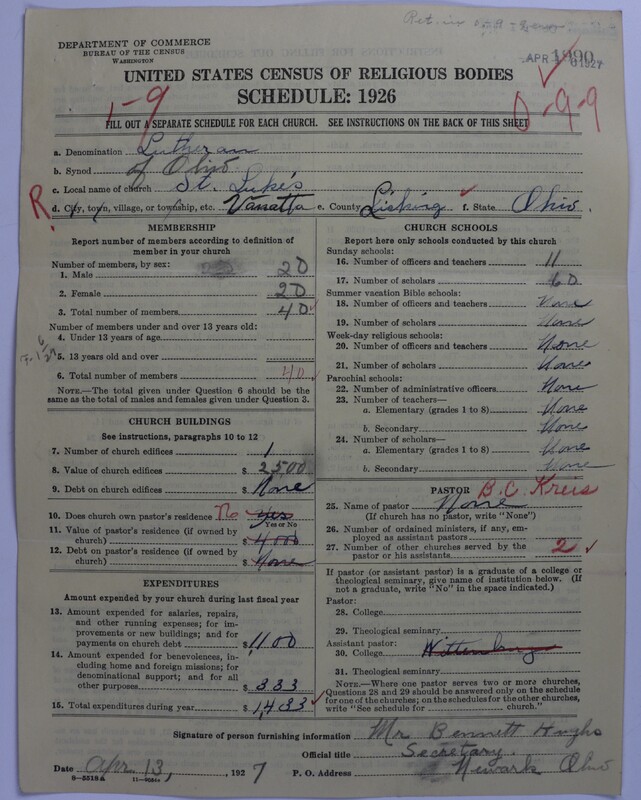 DEPARTMENT OF COMMERCE
BUREAU OF THE CENSUS
WASHINGTON
APR 1927
1890
UNITED STATES CENSUS OF RELIGIOUS BODIES
SCHEDULE: 1926
1-9
0-9-9
FILL OUT A SEPARATE SCHEDULE FOR EACH CHURCH. SEE INSTRUCTIONS ON THE BACK OF THIS SHEET
a. Denomination Lutheran
b. Synod of Ohio
c. Local name of church St. Luke's
R. d. City, town, village, or township, etc. Vanatta e. County Licking f. State Ohio.
MEMBERSHIP
Report number of members according to definition of member in your church
Number of members, by sex:
1. Male 20
2. Female 20
3. Total number of members 40
Number of members under and over 13 years old:
4. Under 13 years of age
5. 13 years old and over
6. Total number of members 40
NOTE.—The total given under Question 6 should be the same as the total of males and females given under Question 3.
CHURCH BUILDINGS
See instructions, paragraphs 10 to 12
7. Number of church edifices 1
8. Value of church edifices $ 2500
9. Debt on church edifices $ None
10. Does church own pastor's residence No Yes
Yes or No
11. Value of pastor's residence (if owned by church) $ 4000
12. Debt on pastor's residence (if owned by church) $ None
EXPENDITURES
Amount expended by your church during last fiscal year
13. Amount expended for salaries, repairs, and other running expenses; for improvements or new buildings; and for payments on church debt $ 1100
14. Amount expended for benevolences, including home and foreign missions; for denominational support; and for all other purposes $ 333
15. Total expenditures during year $ 1,433
CHURCH SCHOOLS
Report here only schools conducted by this church
Sunday schools:
16. Number of officers and teachers 11
17. Number of scholars 60
Summer vacation Bible schools:
18. Number of officers and teachers None
19. Number of scholars None
Week-day religious schools:
20. Number of officers and teachers None
21. Number of scholars None
Parochial schools:
22. Number of administrative officers None
23. Number of teachers—
a. Elementary (grades 1 to 8) None
b. Secondary None
24. Number of scholars—
a. Elementary (grades 1 to 8) None
b. Secondary None
PASTOR B. C. Kreis
25. Name of pastor None
(If church has no pastor, write "None")
26. Number of ordained ministers, if any, employed as assistant pastors
27. Number of other churches served by the pastor or his assistants 2
If pastor (or assistant pastor) is a graduate of a college or theological seminary, give name of institution below. (If not a graduate, write "No" in the space indicated.)
Pastor:
28. College
29. Theological seminary
Assistant pastor:
30. College Wittenburg
31. Theological seminary
NOTE.—Where one pastor serves two or more churches, Questions 28 and 29 should be answered only on the schedule for one of the churches; on the schedules for the other churches, write "See schedule for church."
Signature of person furnishing information Mr Bennett Hughs
Official title Secretary.
Date Apr. 13, 1927 P. O. Address Newark Ohio